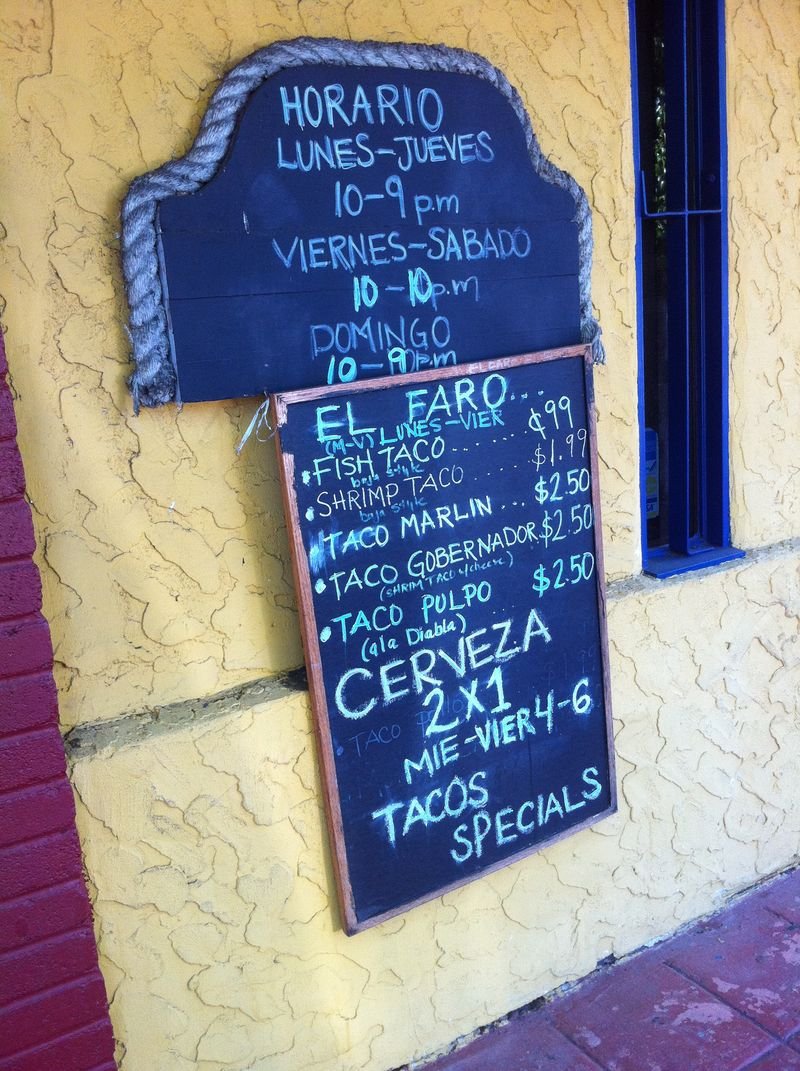 HORARIO
LUNES-JUEVES
10-9 p.m
VIERNES-SABADO
10-10p.m
DOMINGO
10-9p.m
EL FARO...
(M-V) LUNES-VIER
• FISH TACO ....... ¢99
baja style
• SHRIMP TACO ...... $1.99
baja style
• TACO MARLIN ... $2.50
• TACO GOBERNADOR..$2.50
(SHRIM TACO w/cheese)
• TACO PULPO $2.50
(a la Diabla)
CERVEZA
2X1
MIE-VIER 4-6
TACO
TACOS
SPECIALS